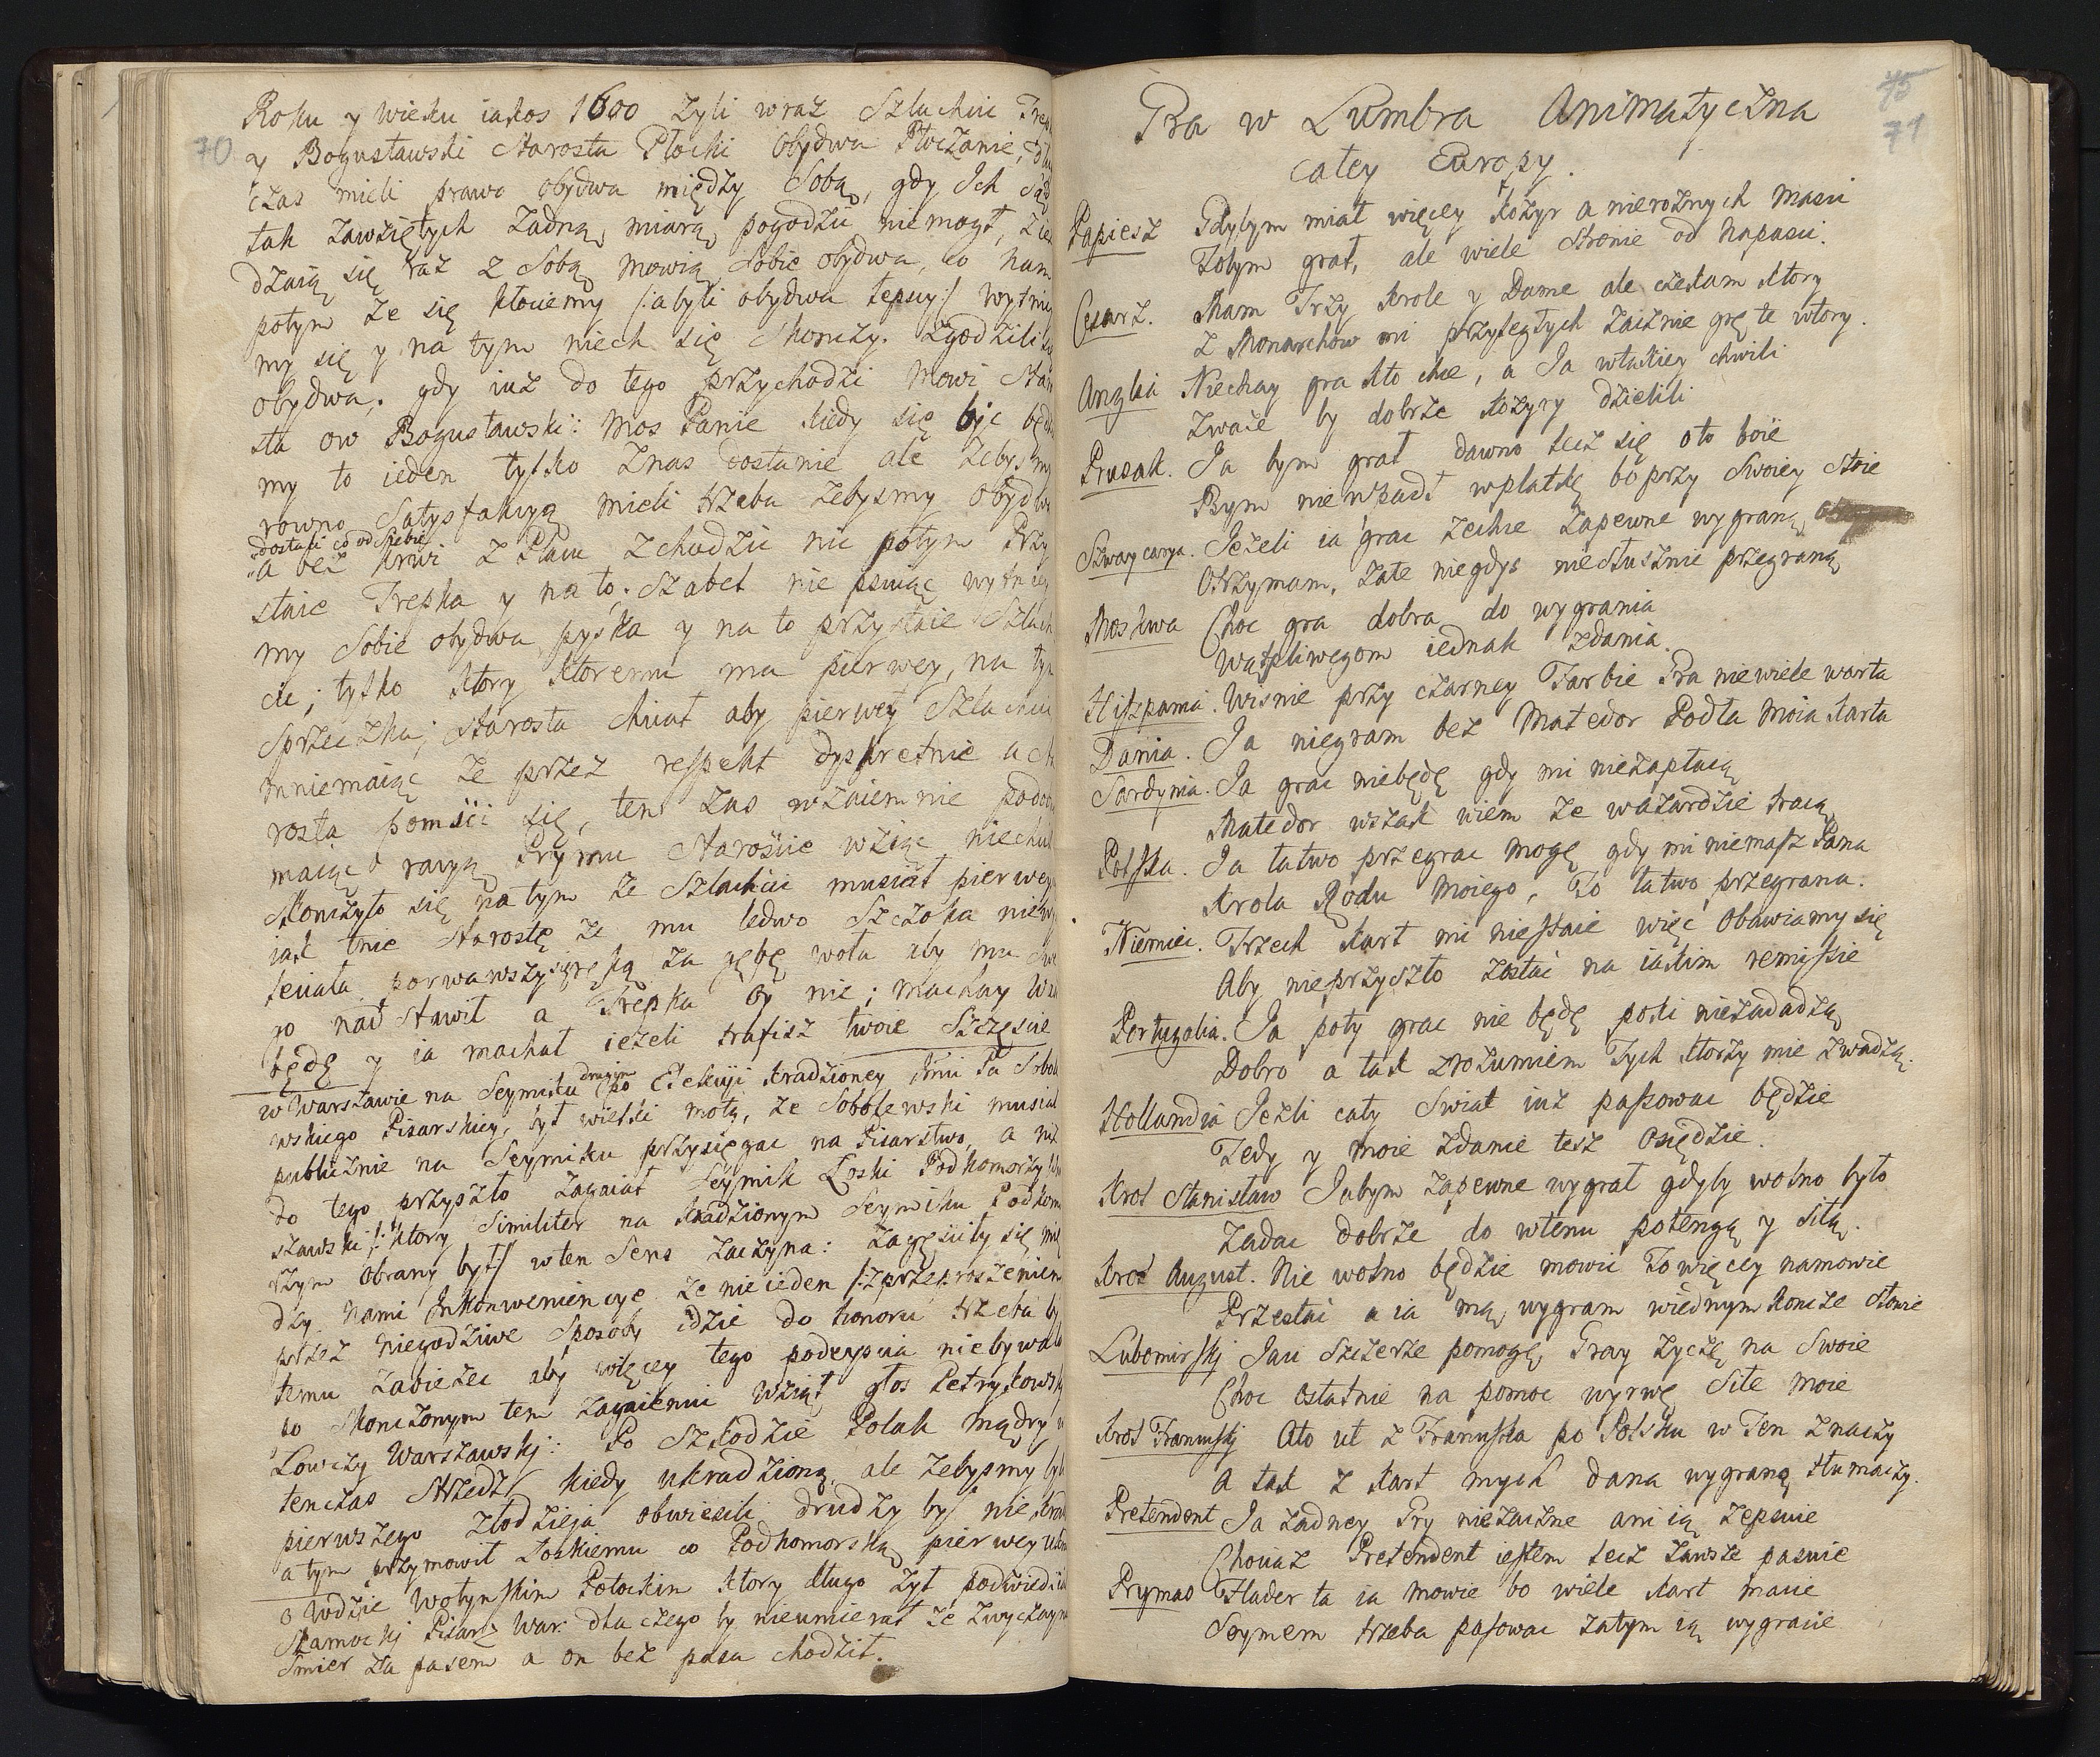 70
Roku y wieku iakos 1600 Zyli wraz Szlachcic
y Bogusławski Starosta Płocki obydwa Płoczanie,
czas mieli prawo obydwa między Sobą, gdy Ich
tak zawziętych Zadną miarą pogodzic niemogł,
dzaią się raz z Sobą mowią Sobie obydwa, co nam
potym ze się kłociemy /:a byli obydwa tepscy:/
my się y na tym niech się skonczy. Zgodzili
obydwa. gdy iuz do tego przychodzi Mowi
sta ow Bogusławski: Mos Panie kiedy się bic
my to ieden tylko Znas dostanie ale Zebysmy
rowno Satysfakcyą mieli trzeba zebysmy
dostali co od Siebie
a bez krwi z Placu Zchodzic nic potym
staie Trepka y na to. Szabel nie psuiąc
my Sobie obydwa pyska y na to przystaie
cic; tylko ktory ktoremu ma pierwey, na
sprzeczka; Starosta chciał aby pierwey
mniemaiąc ze przez respekt dyskretnie
rosta pomsci się, ten zas wzaiemnie
maiąc racyą Prymu Staroscie wziąc
Skonczyło się na tym ze Szlachcic musiał pierwey
iak tnie Starostę ze mu ledwo Szczoka
leciała porwawszy się ręką za gębę woła aby mu
go nad stawił a Trepka Ey nie; machay
będę y ia machał iezeli trafisz twoie Szczęscie
w Warszawie na Seymiku drugim po Elekcyi kradzioney
wskiego Pisarskiey, był wielki motą, ze Sobolewski musiał
publicznie na Seymiku przysięgac na Pisarstwo, a
do tego przyszło zagaiał Seymik Łoski Podkomorzy
szawski /: ktory Similiter na kradzionym Seymiku
rzym obrany był:/ w ten Sens zaczyna: zagęsciły się
dzy nami Inkonweniencye ze nie ieden /:z przeproszeniem
przez niegodziwe sposoby idzie do honoru trzeba
temu zabiezec aby więcey tego podeyscia niebywało
po skonczonym tem zagaieniu wziął głos Petrykowski
Łowczy Warszawskj: Po Szkodzie Polak mądry
tenczas Strzedz kiedy ukradzioną, ale zebysmy
pierwszego złodzieja obwiesili drudzy by nie
a tym przymowił Łoskiemu co Podkomorską pierwey
o Wdzie Wołynskim Potockim ktory długo zył
Skamockj Pisarz War: dla czego by nieumierał ze zwyczayna
Smier za pasem a on bez pasa chodził.
75
71
Gra w Lumbra Animatyczna
całey Europy.
Papiesz Gdybym miał więcey kozyr a nieroznych Masci
Tobym grał, ale wiele Stronie od Napasci.
Cesarz. Mam Trzy Krole y Dame ale czekam ktory
z Monarchow mi przyległych zacznie grę te wtory.
Anglia Niechay gra kto chce, a Ja w takiey chwili
Zwaze by dobrze kozyry dzielili
Prusak. Ja bym grał dawno lecz się oto boie
Bym nie wpadł w platkę bo przy Swoiey stoie
Szwaycarya. Jezeli ia grac zechce zapewne wygraną
Otrzymam, zate niegdys niesłusznie przegraną
Moskwa Choc gra dobra do wygrania
Wątpliwegom iednak zdania.
Hiszpania. Wisnie przy czarney Farbie Gra niewiele warta
Dania. Ja niegram bez Matedor Podła Moia karta
Sardynia. Ja grac niebędę gdy mi niezapłacą
Matedor wszak wiem ze w azardzie tracą
Polska. Ja łatwo przegrac mogę gdy mi niemasz Pana
Krola Rodu Moiego, To łatwo przegrana.
Niemiec. Trzech kart mi niestaie więc Obawiamy się
Aby nieprzyszło zostac na iakim remisie
Portugalia. Ja poty grac nie będę poki niezadadzą
Dobro a tak zrozumiem Tych ktorzy mie zwadzą.
Hollandia Jezli cały Swiat iuz pasowac będzie
Tedy y moie zdanie tesz Osiędzie.
Krol Stanisław Jabym zapewne wygrał gdyby wolno było
Zadac dobrze do wtenu potengą y siłą.
Krol August. Nie wolno będzie mowic To więcey namowie
Przestac a ia mą wygram wiednym koncze słowie
Lubomirskj Jaci Szczerze pomogę, Gray zyczę na Swoie
Choc ostatnie na pomoc wyrwę Siłe moie
Krol Francuskj Ato ut z Francuska po Polsku w Ten znaczy
A tak z kart mych dana wygraną tłumaczy.
Pretendent Ja zadney Gry niezaczne ani ią zepsuie
Chociaz Pretendent iestem lecz zawsze pasuie
Prymas Hader ta ia mowie bo wiele kart macie
Seymem trzeba pasowac zatym ią wygracie